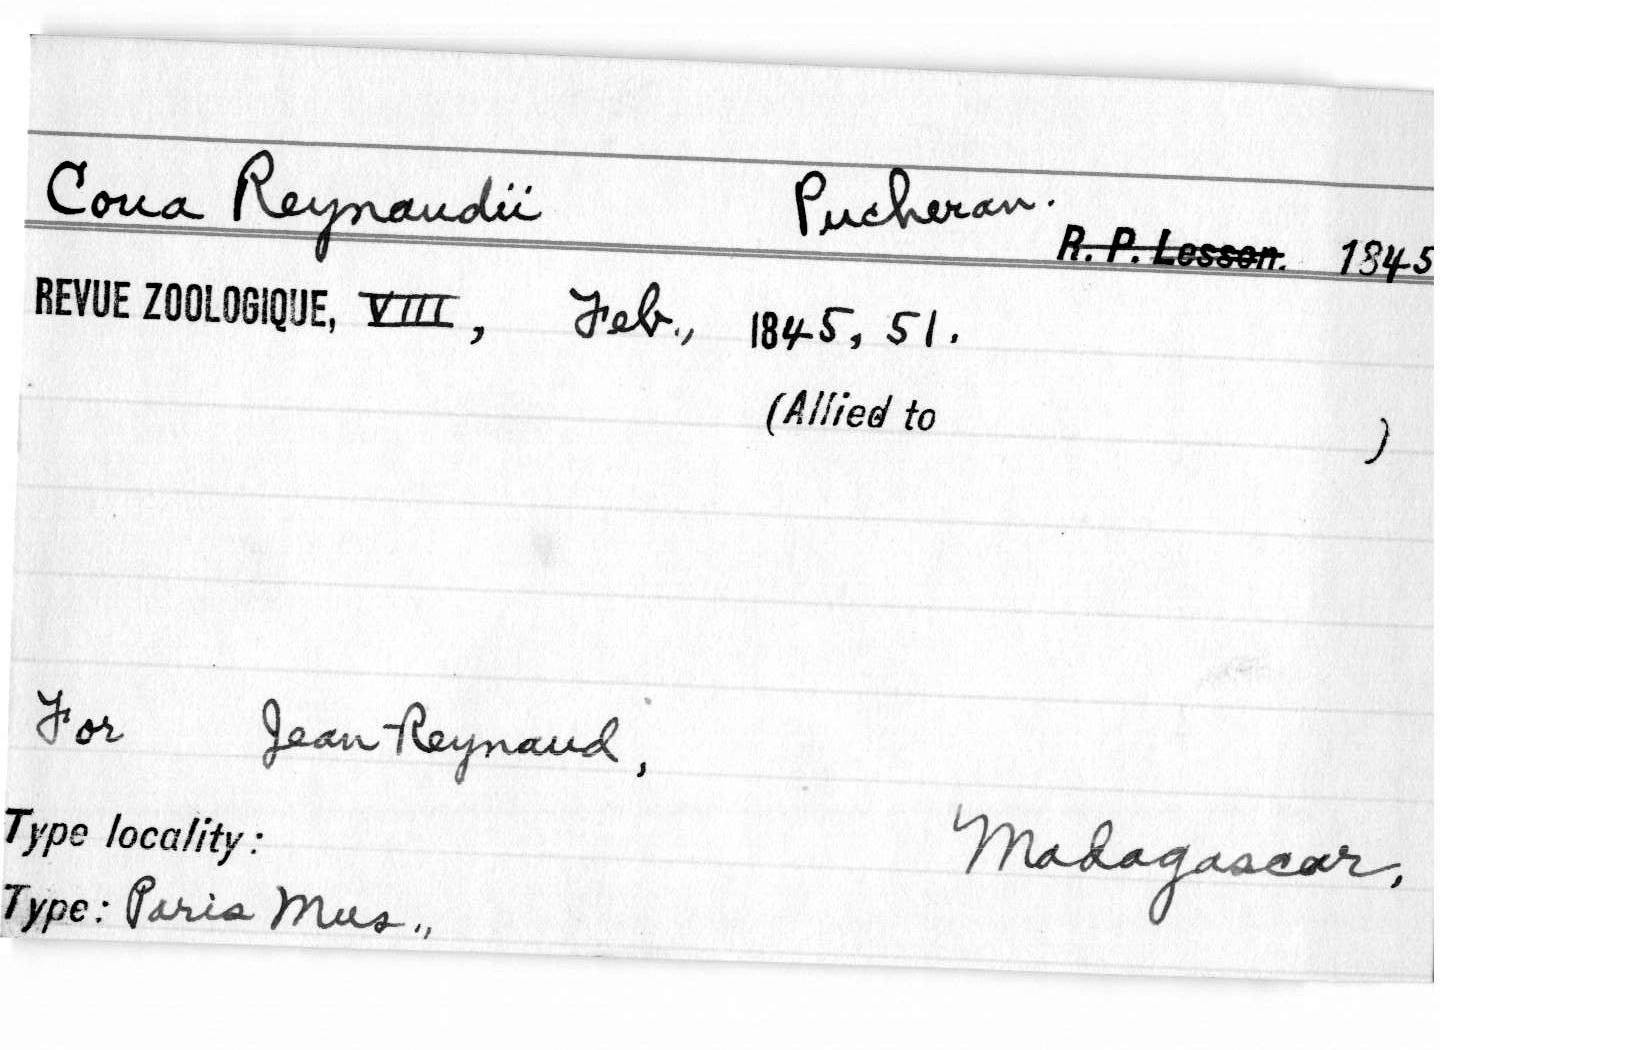 Coua Reynaudii Pucheran.
R. P. Lesson. 1845
REVUE ZOOLOGIQUE, VIII, Feb., 1845, 51.
(Allied to )
For Jean Reynaud,
Type locality: Madagascar,
Type: Paris Mus.,